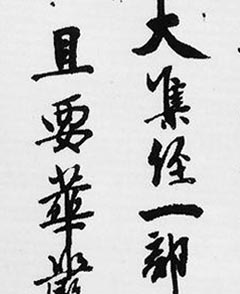 大集经一部
且要華嚴